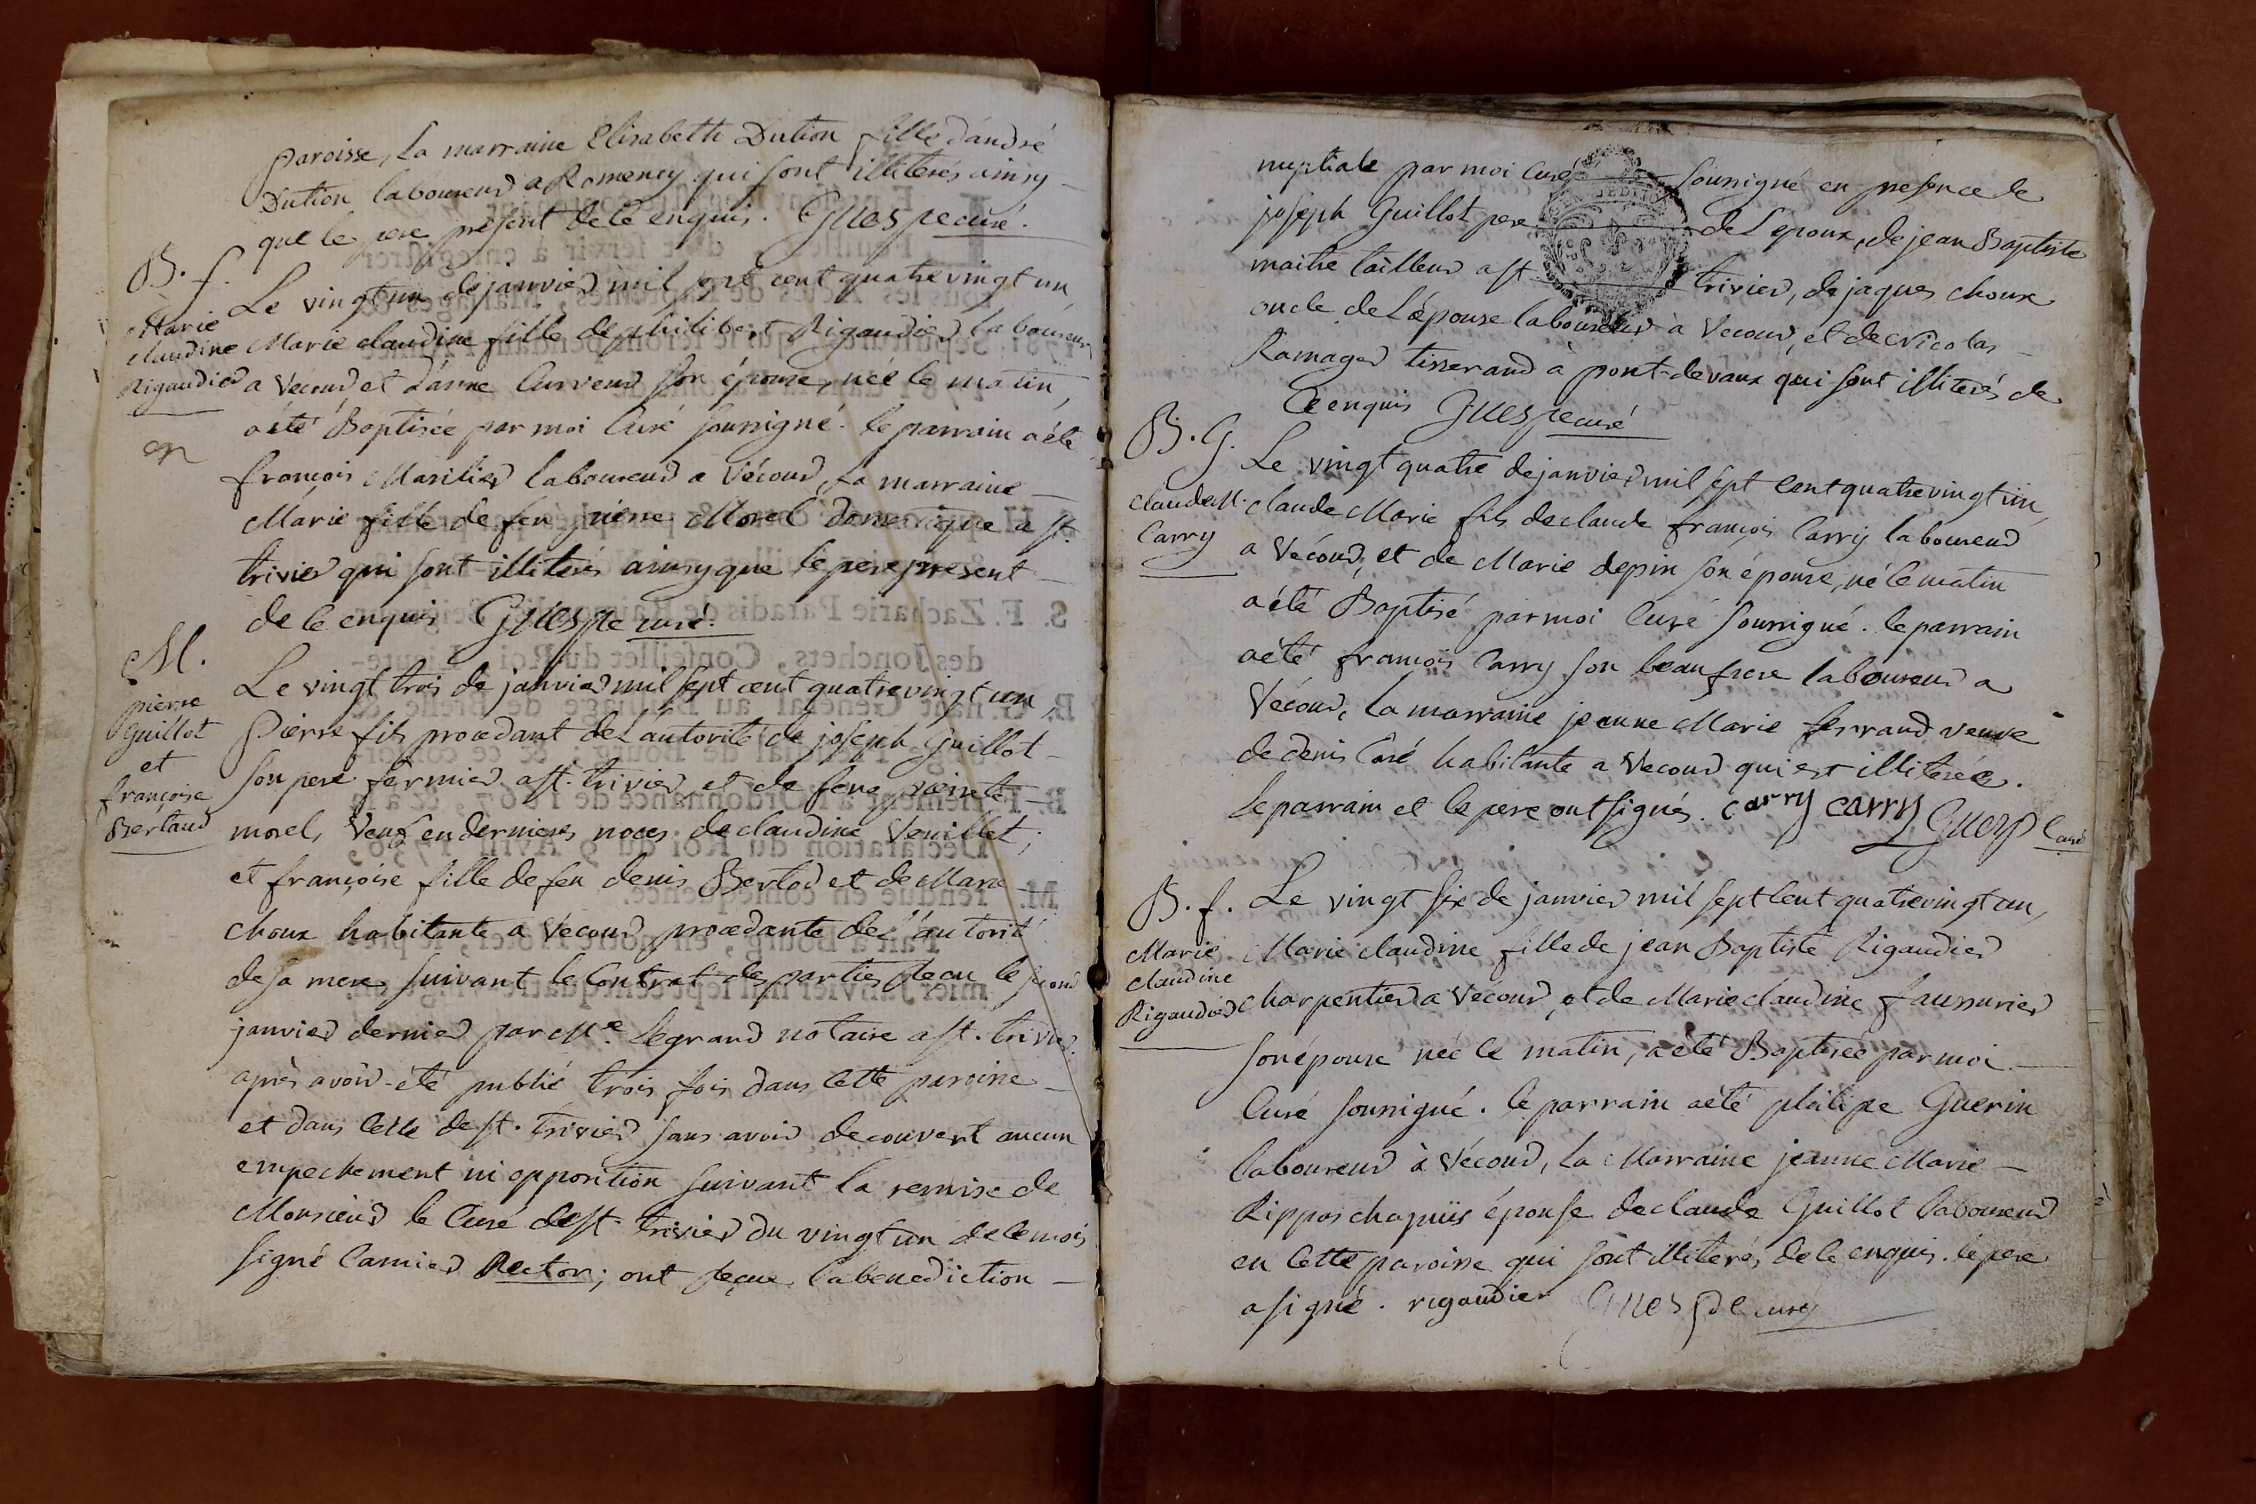 paroisse, la marraine Elisabeth Dution fille d'andré
Dution laboureur a Romenay qui sont illiterés ainsy
que le pere present de ce enquis. Guespe curé.
B. f.
Marie
claudine
Rigaudier
Le vingt un de janvier mil sept cent quatre vingt un,
Marie claudine fille de philibert Rigaudier laboureur
a Vecour et d'anne Curveur son épouse, née le matin,
a été Baptisée par moi Curé soussigné. le parrain a été
françois Marilier laboureur a Vécour, la marraine
Marie fille de feu piene Morel domestique a st.
trivier qui sont illiterés ainsy que le pere present
de ce enquis Guespe curé.
M.
pierre
Guillot
et
françoise
Bertaud
Le vingt trois de janvier mil sept cent quatre vingt un,
Pierre fils procedant de L'autorité de joseph Guillot
son pere fermier a st. trivier et de feue
morel, veuf en dernieres noces de claudine Veuillet;
et françoise fille de feu denis Bertod et de Marie
choux habitante a Vecour procedante de L'autorité
de sa mere suivant le Contrat des parties reçu le second
janvier dernier par Me. Legrand notaire a st. trivier
après avoir été publié trois fois dans cette paroisse
et dans celle de st. trivier sans avoir decouvert aucun
empechement ni opposition suivant la remise de
Monsieur le Curé de st. trivier du vingt un de ce mois
signé Camier Recton; ont reçue la benediction
nuptiale par moi Curé soussigné en presence de
joseph Guillot pere de L'epoux, de jean Baptiste
maitre tailleur a st trivier, de jaques choux
oncle de L'épouse laboureur à Vecour, et de Nicolas
Ramager tisserand à pont-devaux qui sont illiterés de
Ce enquis Guespe curé
B. G.
claude M.
Carry
Le vingt quatre de janvier mil sept cent quatre vingt un,
claude Marie fils de claude françois Carry laboureur
a Vecour, et de Marie depin son épouse, né le matin
a été Baptisé par moi Curé soussigné. le parrain
a été françois Carry son beau frere laboureur a
Vécour, la marraine jeanne Marie ferrand veuve
de denis Coré habitante a Vecour qui est illiterée.
le parrain et le pere ont signés. carry carry Guespe Curé
B. f.
Marie
claudine
Rigaudier
Le vingt six de janvier mil sept cent quatre vingt un,
Marie claudine fille de jean Baptiste Rigaudier
charpentier a Vécour, et de Marie claudine faussurier
son épouse née le matin, a été Baptisée par moi
Curé soussigné. le parrain a été philipe Guerin
laboureur à Vécour, la Marraine jeanne Marie
Rippos chapuis épouse de claude Guillot laboureur
en cette paroisse qui sont illiterés de ce enquis. le pere
a signé. rigaudier Guespe curé